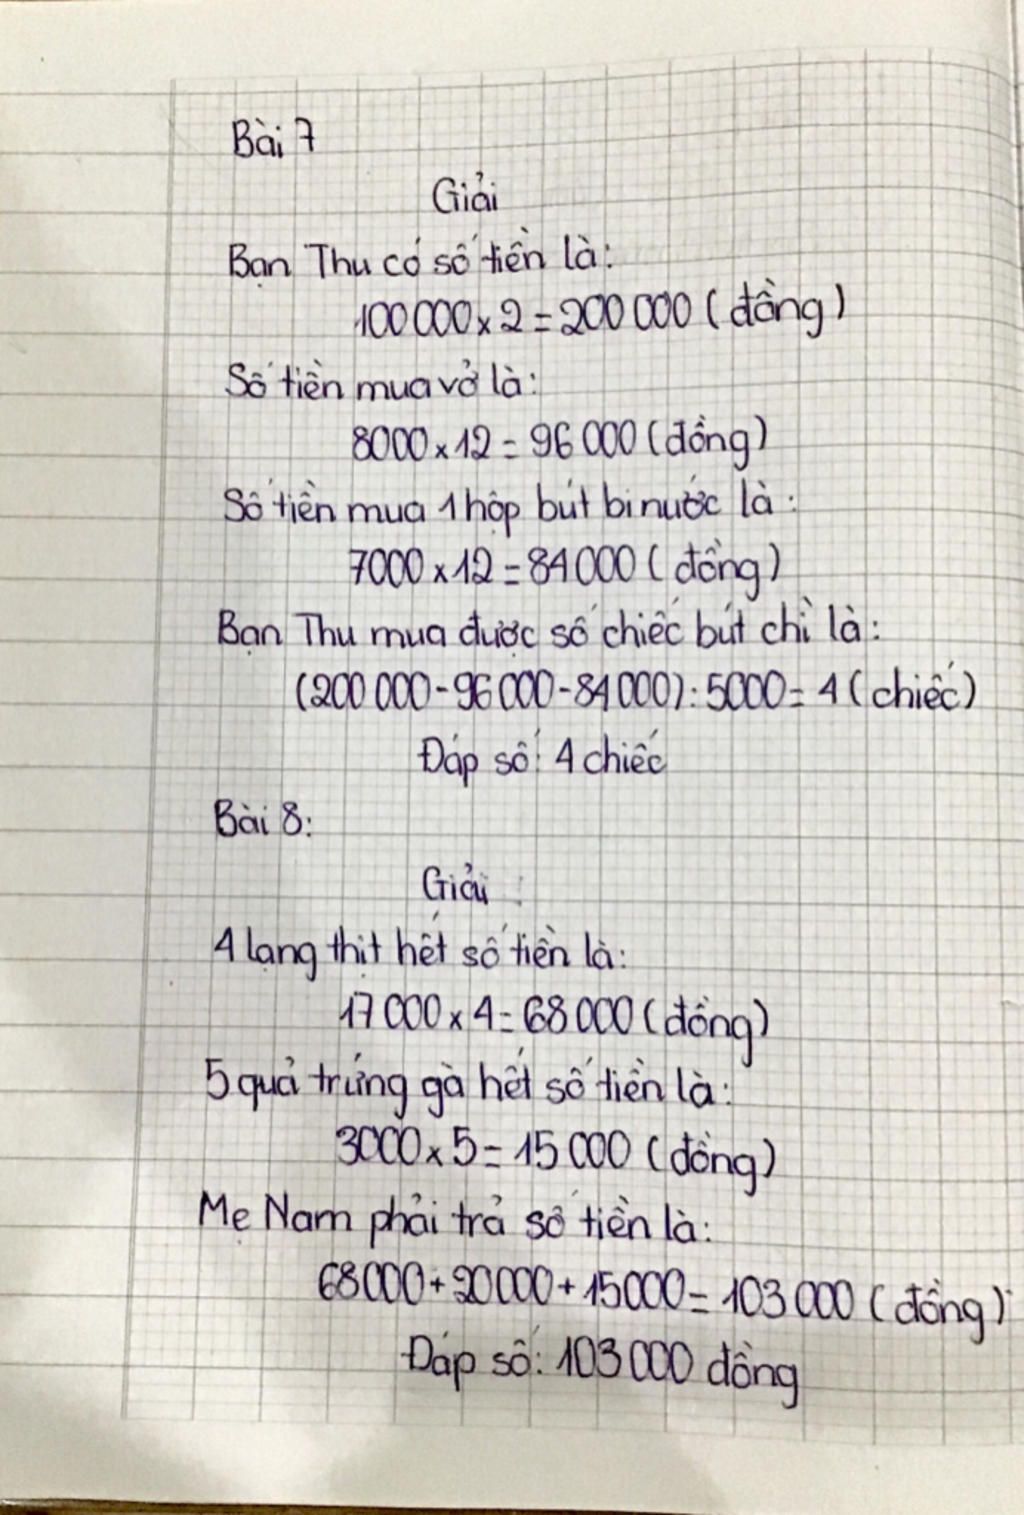 Bài 7
Giải
Bạn Thu có số tiền là:
100 000 x 2 = 200 000 (đồng)
Số tiền mua vở là:
8000 x 12 = 96 000 (đồng)
Số tiền mua 1 hộp bút bi nước là:
7000 x 12 = 84 000 (đồng)
Bạn Thu mua được số chiếc bút chì là:
(200 000 - 96 000 - 84 000) : 5000 = 4 (chiếc)
Đáp số: 4 chiếc
Bài 8:
Giải
4 lạng thịt hết số tiền là:
17 000 x 4 = 68 000 (đồng)
5 quả trứng gà hết số tiền là:
3000 x 5 = 15 000 (đồng)
Mẹ Nam phải trả số tiền là:
68 000 + 20 000 + 15 000 = 103 000 (đồng)
Đáp số: 103 000 đồng